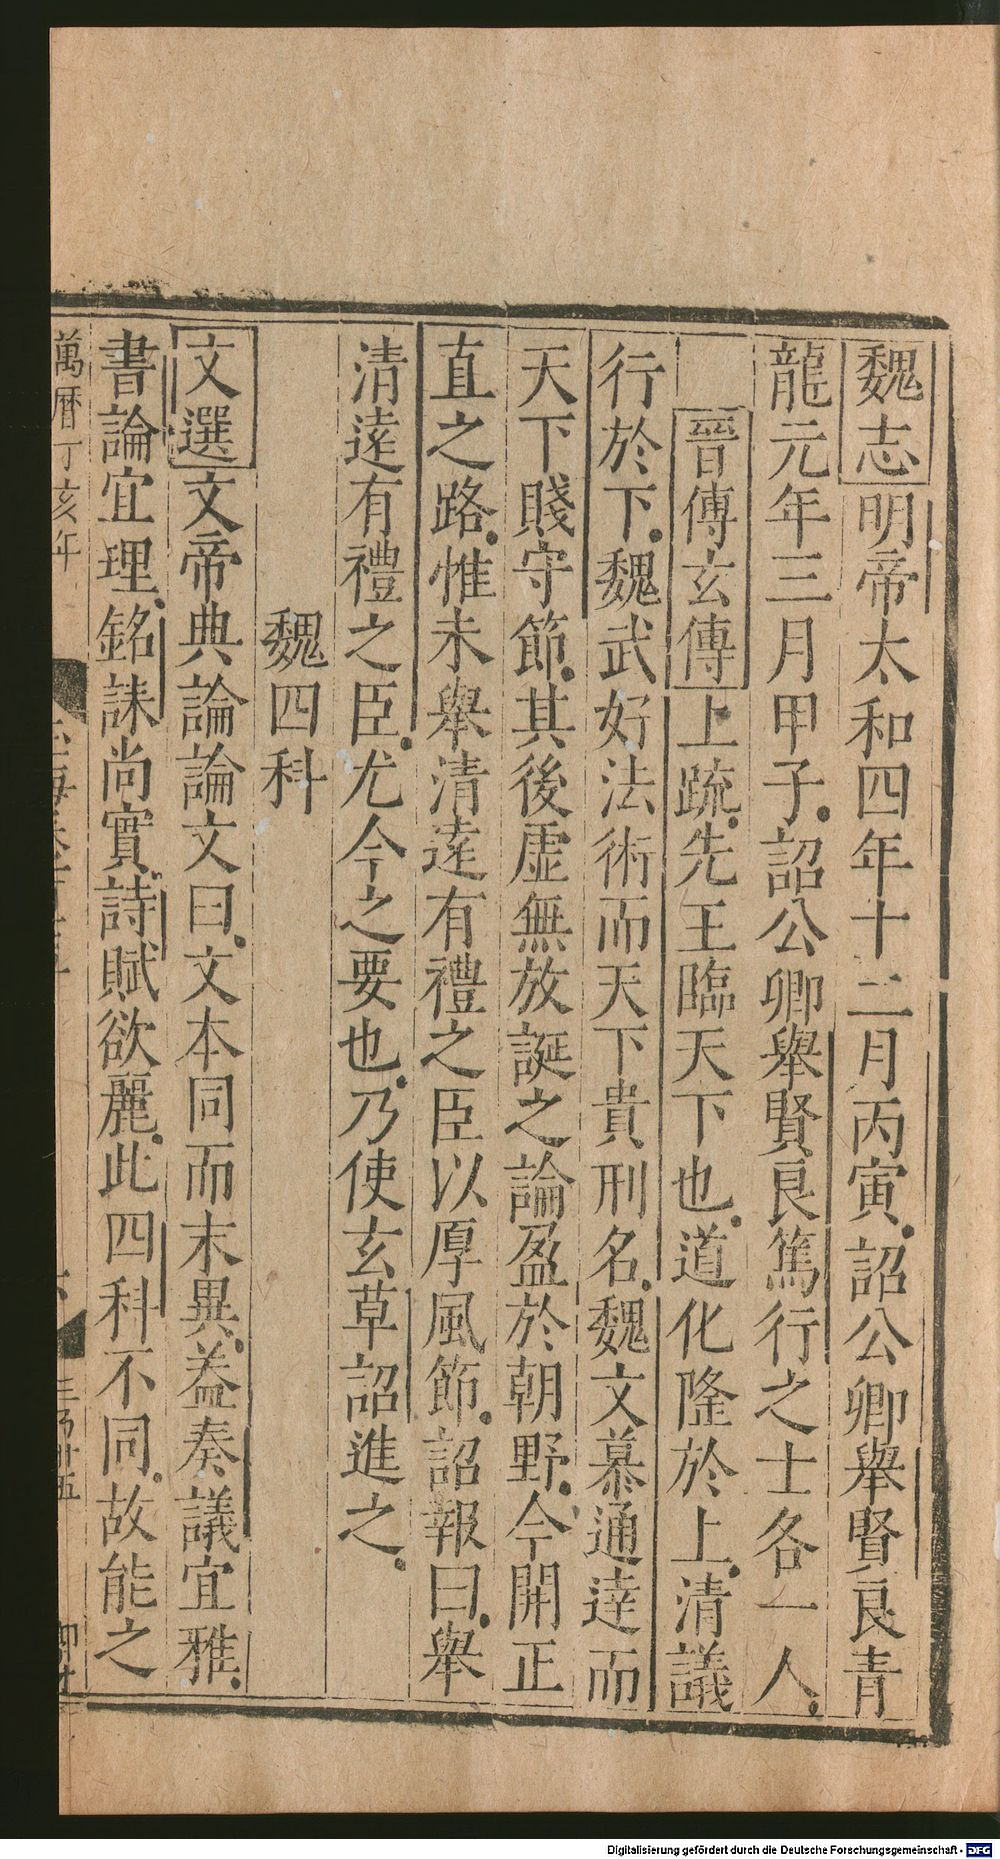 魏志明帝太和四年十二月丙寅詔公卿舉賢良青
龍元年三月甲子詔公卿舉賢良篤行之士各一人
晉傅玄傳上疏先王臨天下也道化隆於上清議
行於下魏武好法術而天下貴刑名魏文慕通達而
天下賤守節其後虛無放誕之論盈於朝野今開正
直之路惟未舉清遠有禮之臣以厚風節詔報曰舉
清遠有禮之臣尤今之要也乃使玄草詔進之
魏四科
文選文帝典論論文曰文本同而末異蓋奏議宜雅
書論宜理銘誄尚實詩賦欲麗此四科不同故能之
萬曆丁亥年
Digitalisierung gefördert durch die Deutsche Forschungsgemeinschaft - DFG